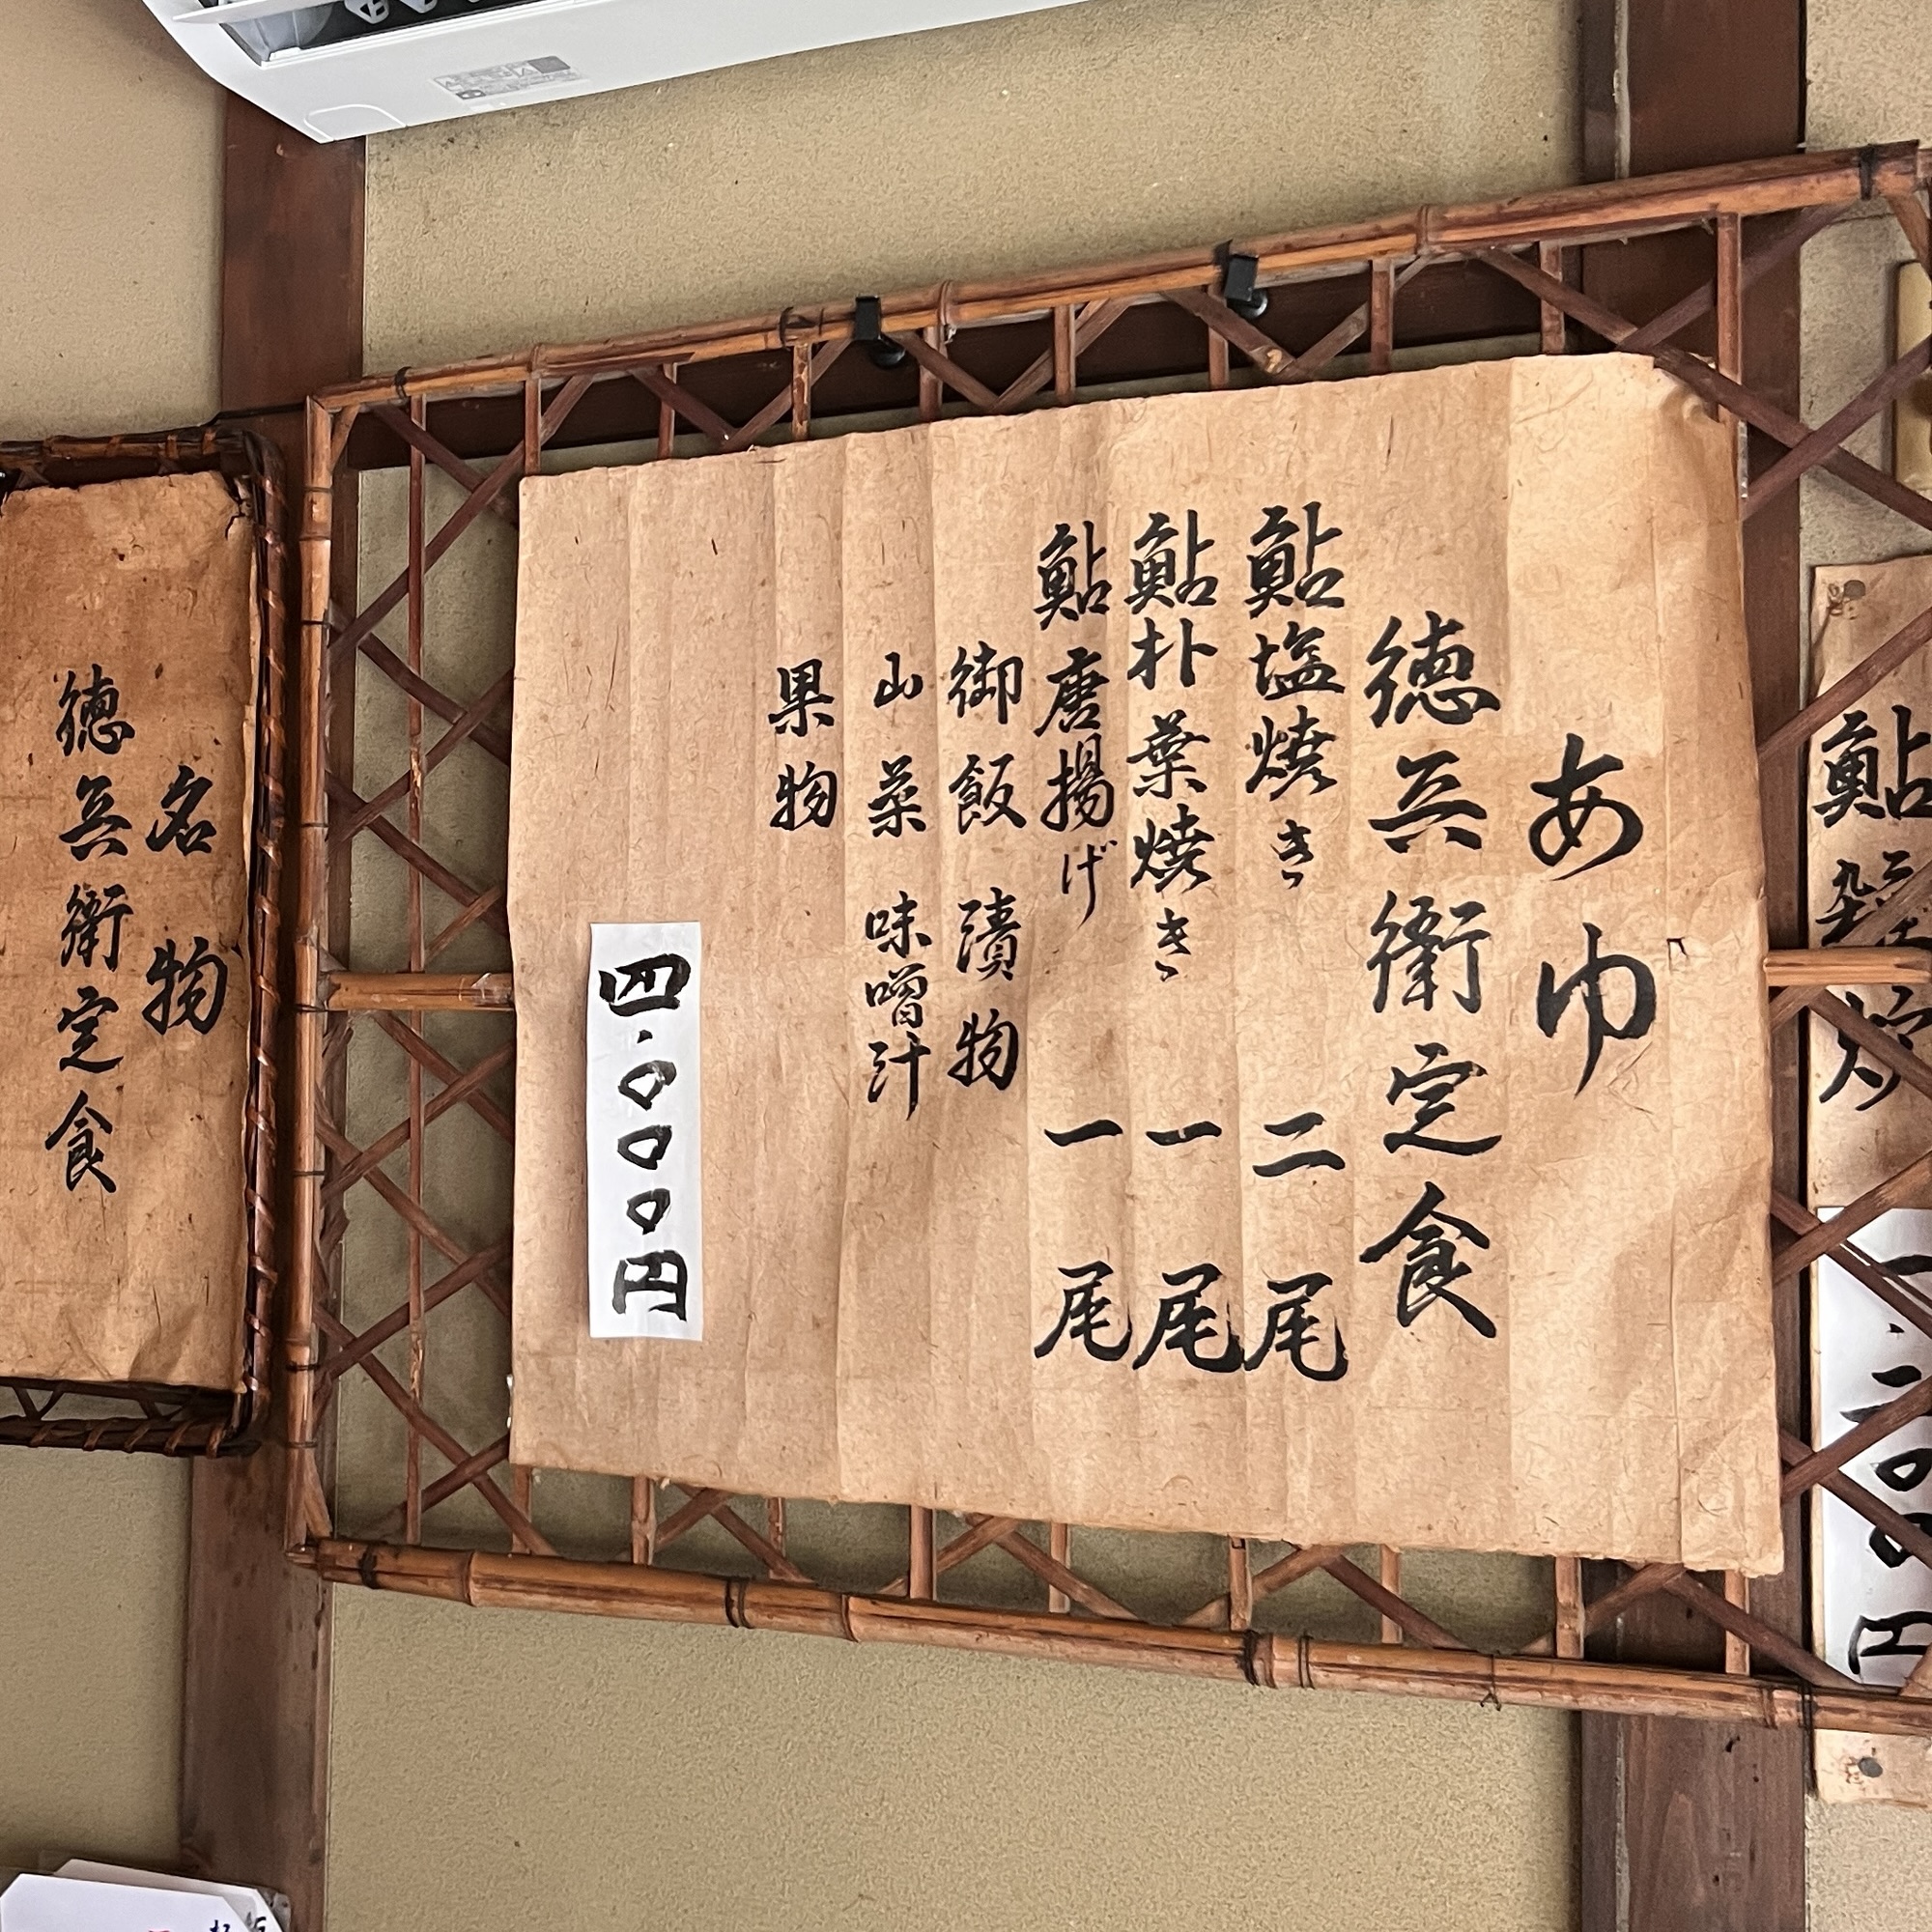 鮎雑炊
あゆ
徳兵衛定食
鮎塩焼き 二尾
鮎朴葉焼き 一尾
鮎唐揚げ 一尾
御飯 漬物
山菜 味噌汁
果物
四.〇〇〇円
名物
徳兵衛定食